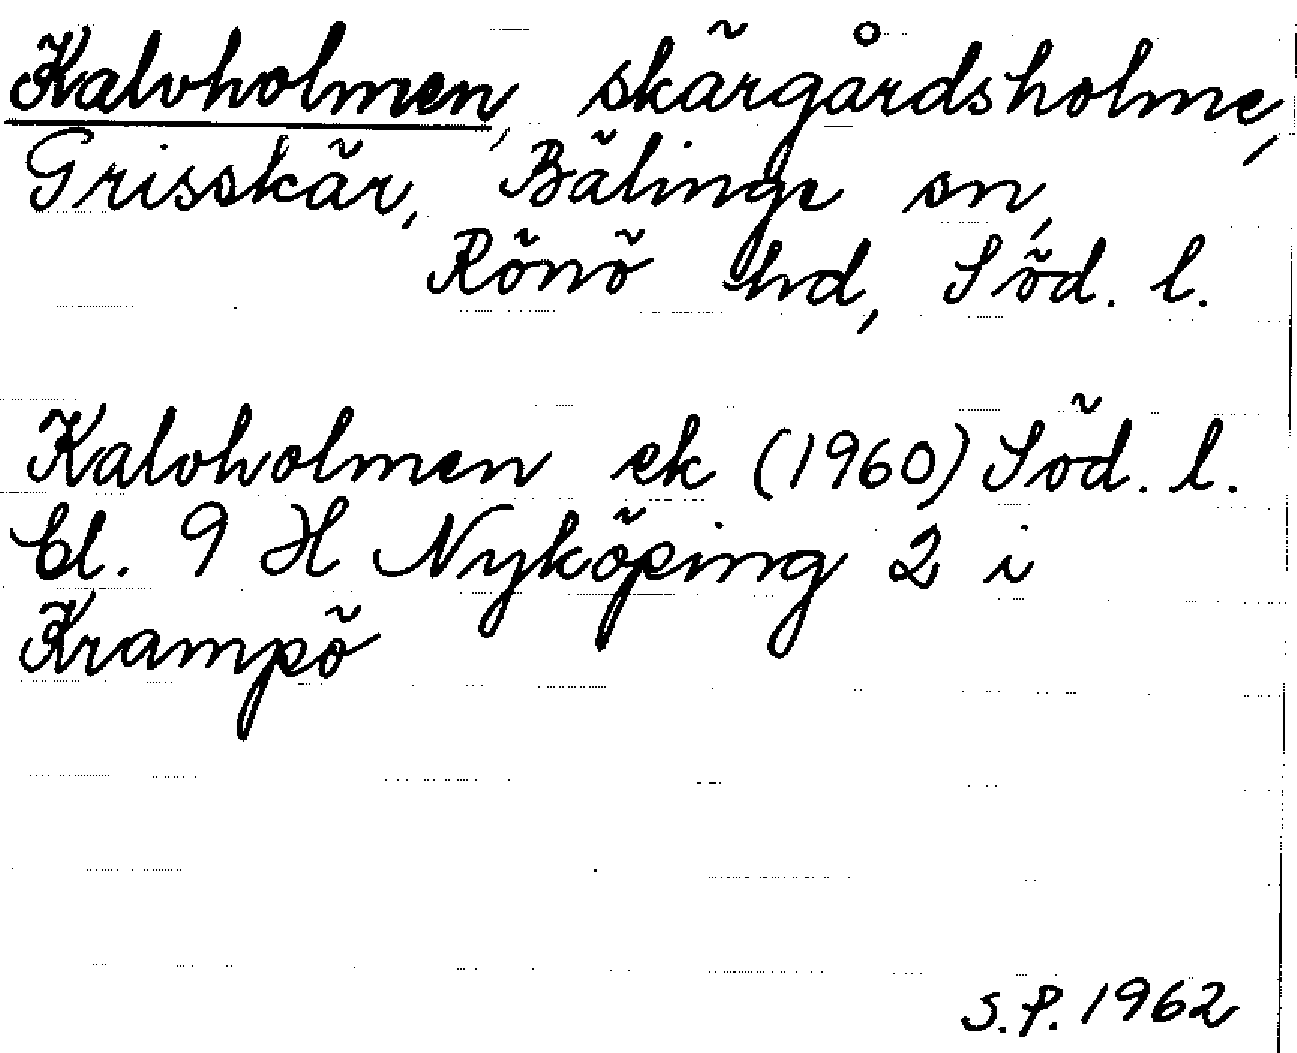 Kalvholmen, skärgårdsholme,
Grisskär, Bälinge sn,
Rönö hd, Söd. l.
Kalvholmen ek (1960) Söd. l.
bl. 9 H Nyköping 2 i
Krampö
S.P. 1962